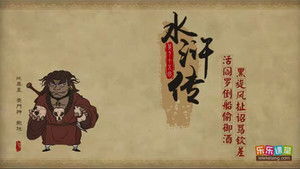 水浒传
黑旋风扯诏骂钦差
活阎罗倒船偷御酒
地暴星 丧门神 鲍旭
乐乐课堂
leleketang.com